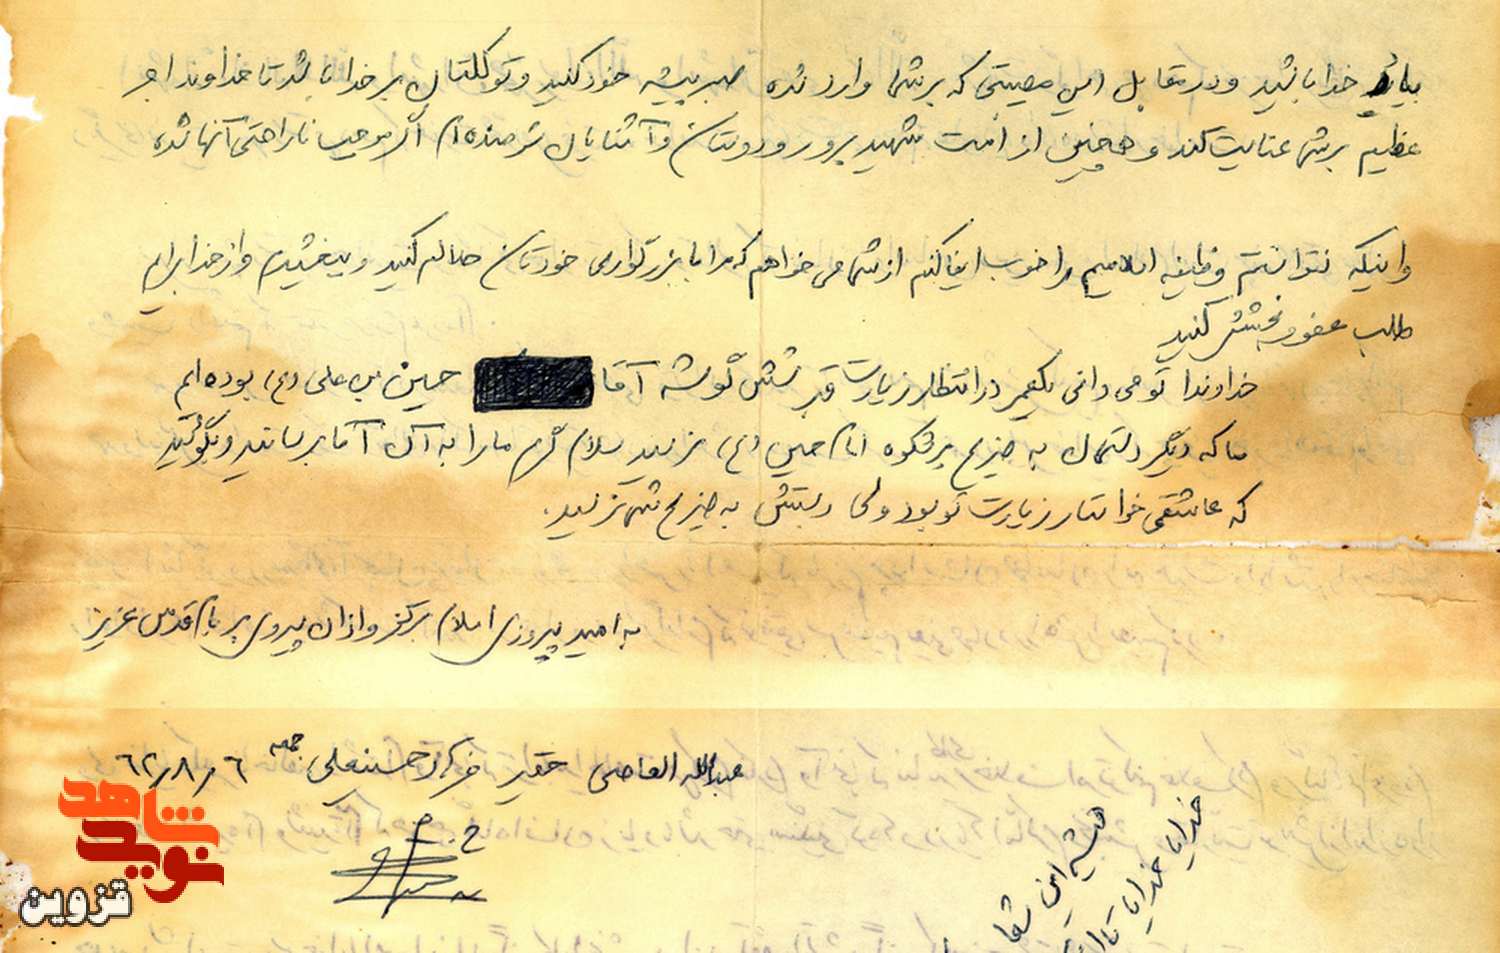 بیاد خدا باشید و در مقابل این مصیبتی که بر شما وارد شده صبر پیشه خود کنید و توکلتان بر خدا باشد تا خداوند اجر
عظیم بر شما عنایت کند و همچنین از امت شهید پرور و دوستان و آشنایان شرمنده‌ام اگر موجب ناراحتی آنها شده
و اینکه نتوانستم وظیفه اسلامیم را خوب ایفا کنم از شما می خواهم که مرا با بزرگواری خودتان حلالم کنید و ببخشیدم و از خدا برایم
طلب عفو و بخشش کنید
خداوندا تو می دانی یکعمر در انتظار زیارت قبر شش گوشه آقا حسین بن علی (ع) بوده‌ام
ما که دیگر دستمان به ضریح پرشکوه امام حسین (ع) نرسید سلام گرم ما را به آن آقا برسانید و بگوئید
که عاشقی خواستار زیارت تو بود ولی دستش به ضریح شما نرسید.
به امید پیروزی اسلام بر کفر و اذان پیروزی بر بام قدس عزیز
عبدالله العاصی حقیر حسینعلی جمعه ۶۲/۸/۶
خدایا خدایا تا
همیشه این شعار
شاهد
نوید
قزوین